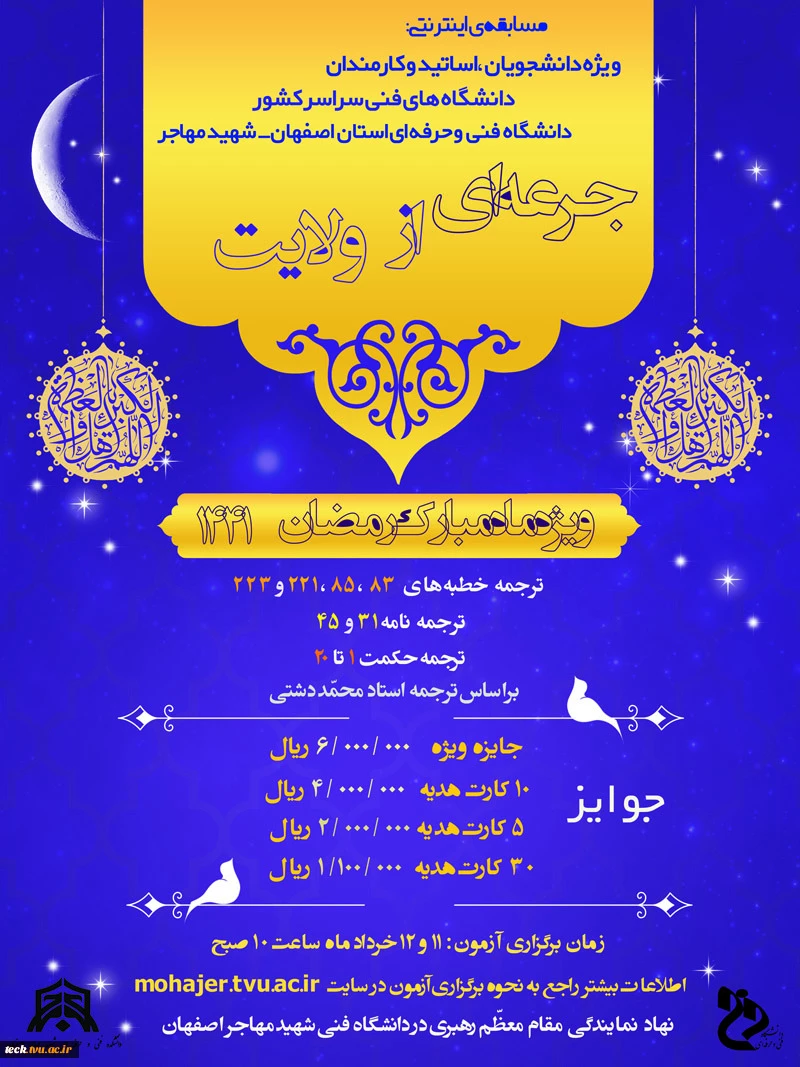 مسابقه‌ی اینترنتی:
ویژه دانشجویان، اساتید و کارمندان
دانشگاه های فنی سراسر کشور
دانشگاه فنی و حرفه ای استان اصفهان_ شهید مهاجر
جرعه‌ای از ولایت
ویژه ماه مبارک رمضان ۱۴۴۱
ترجمه خطبه های ۸۳ ،۸۵ ،۲۲۱ و ۲۲۳
ترجمه نامه ۳۱ و ۴۵
ترجمه حکمت ۱ تا ۲۰
براساس ترجمه استاد محمّد دشتی
جوایز
جایزه ویژه ۶/۰۰۰/۰۰۰ ریال
۱۰ کارت هدیه ۴/۰۰۰/۰۰۰ ریال
۵ کارت هدیه ۲/۰۰۰/۰۰۰ ریال
۳۰ کارت هدیه ۱/۱۰۰/۰۰۰ ریال
زمان برگزاری آزمون: ۱۱ و ۱۲ خرداد ماه ساعت ۱۰ صبح
اطلاعات بیشتر راجع به نحوه برگزاری آزمون در سایت mohajer.tvu.ac.ir
نهاد نمایندگی مقام معظّم رهبری در دانشگاه فنی شهید مهاجر اصفهان
tech.tvu.ac.ir